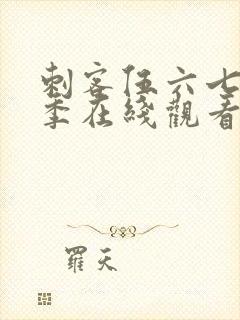 刺客伍六七
季在綫觀看
羅天